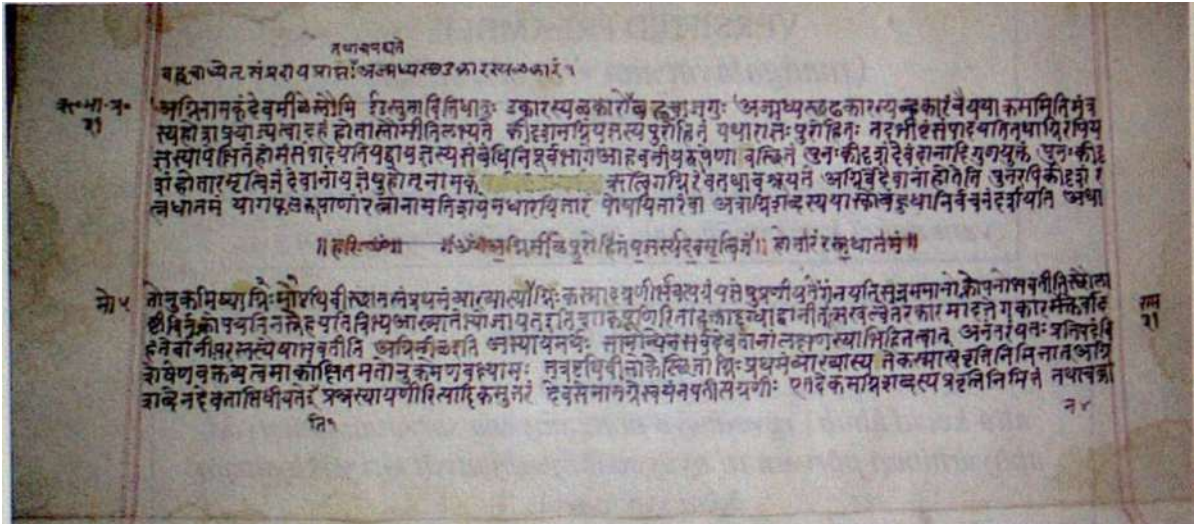 तथाचपठ्यते
बह्वृचाध्येतृसंप्रदायप्राप्तः अज्मध्यस्थडकारस्यळकारं १
ऋ॰भा॰प्र॰ अग्निनामकंदेवमीळेस्तौमि ईडस्तुतावितिधातुः डकारस्यळकारो बह्वृचाजगुः अज्मध्यस्थढकारस्य ळ्हकारंवैयथाक्रममितिमंत्र
२१ स्यहोत्राप्रयोज्यत्वादहं होतास्तौमीतिलभ्यते कीदृशमग्निंयज्ञस्यपुरोहितं यथाराज्ञःपुरोहितः तदभीष्टंसंपादयतितथाग्निरपिय
ज्ञस्यापेक्षितंहोमंसंपादयतियद्वायज्ञस्यसंबंधिनिपूर्वभागेआहवनीयरूपेणावस्थितं पुनःकीदृशंदेवंदानादिगुणयुक्तं पुनःकीदृ
शंहोतारमृत्विजं देवानांयज्ञेषुहोतृनामक ऋत्विगग्निरेवतथाचश्रूयते अग्निर्वैदेवानांहोतेति पुनरपिकीदृशं र
त्नधातमं यागफलरूपाणांरत्नानामतिशयेनधारयितारं पोषयितारंवा अत्राग्निशब्दस्ययास्कोबहुधानिर्वचनंदर्शयति अथा
॥हरिःॐ॥ अग्निमीळेपुरोहितंयज्ञस्यदेवमृत्विजं॥ होतारंरत्नधातमं॥
तोनुक्रमिष्यामोग्निः पृथिवीस्थानस्तंप्रथमंव्याख्यास्यामोग्निःकस्मादग्रणीर्भवत्यग्रंयज्ञेषुप्रणीयतेंगंनयतिसंनममानोक्नोपनोभवतीतिस्थौला
हैतेर्वानीपरस्तस्यैषाभवतीति अग्निमीळइति अस्यायमर्थः सामान्येनसर्वदेवतानांलक्षणस्याभिहितत्वात् अनंतरंयतःप्रतिपदंवि
शेषेणवक्तव्यत्वमाकांक्षितमतोनुक्रमेणवक्ष्यामः तत्रपृथिवीलोकेस्थितोग्निः प्रथमंव्याख्यास्यते कस्मात्प्रवृत्तिनिमित्तात् अग्नि
शब्देनदेवताभिधीयतइ प्रश्नस्याग्रणीरित्यादिकमुत्तरं देवसेनामग्रेस्वयंनयतीत्यग्रणीः एतदेकमग्निशब्दस्यप्रवृत्तिनिमित्तं तथाच
ति१